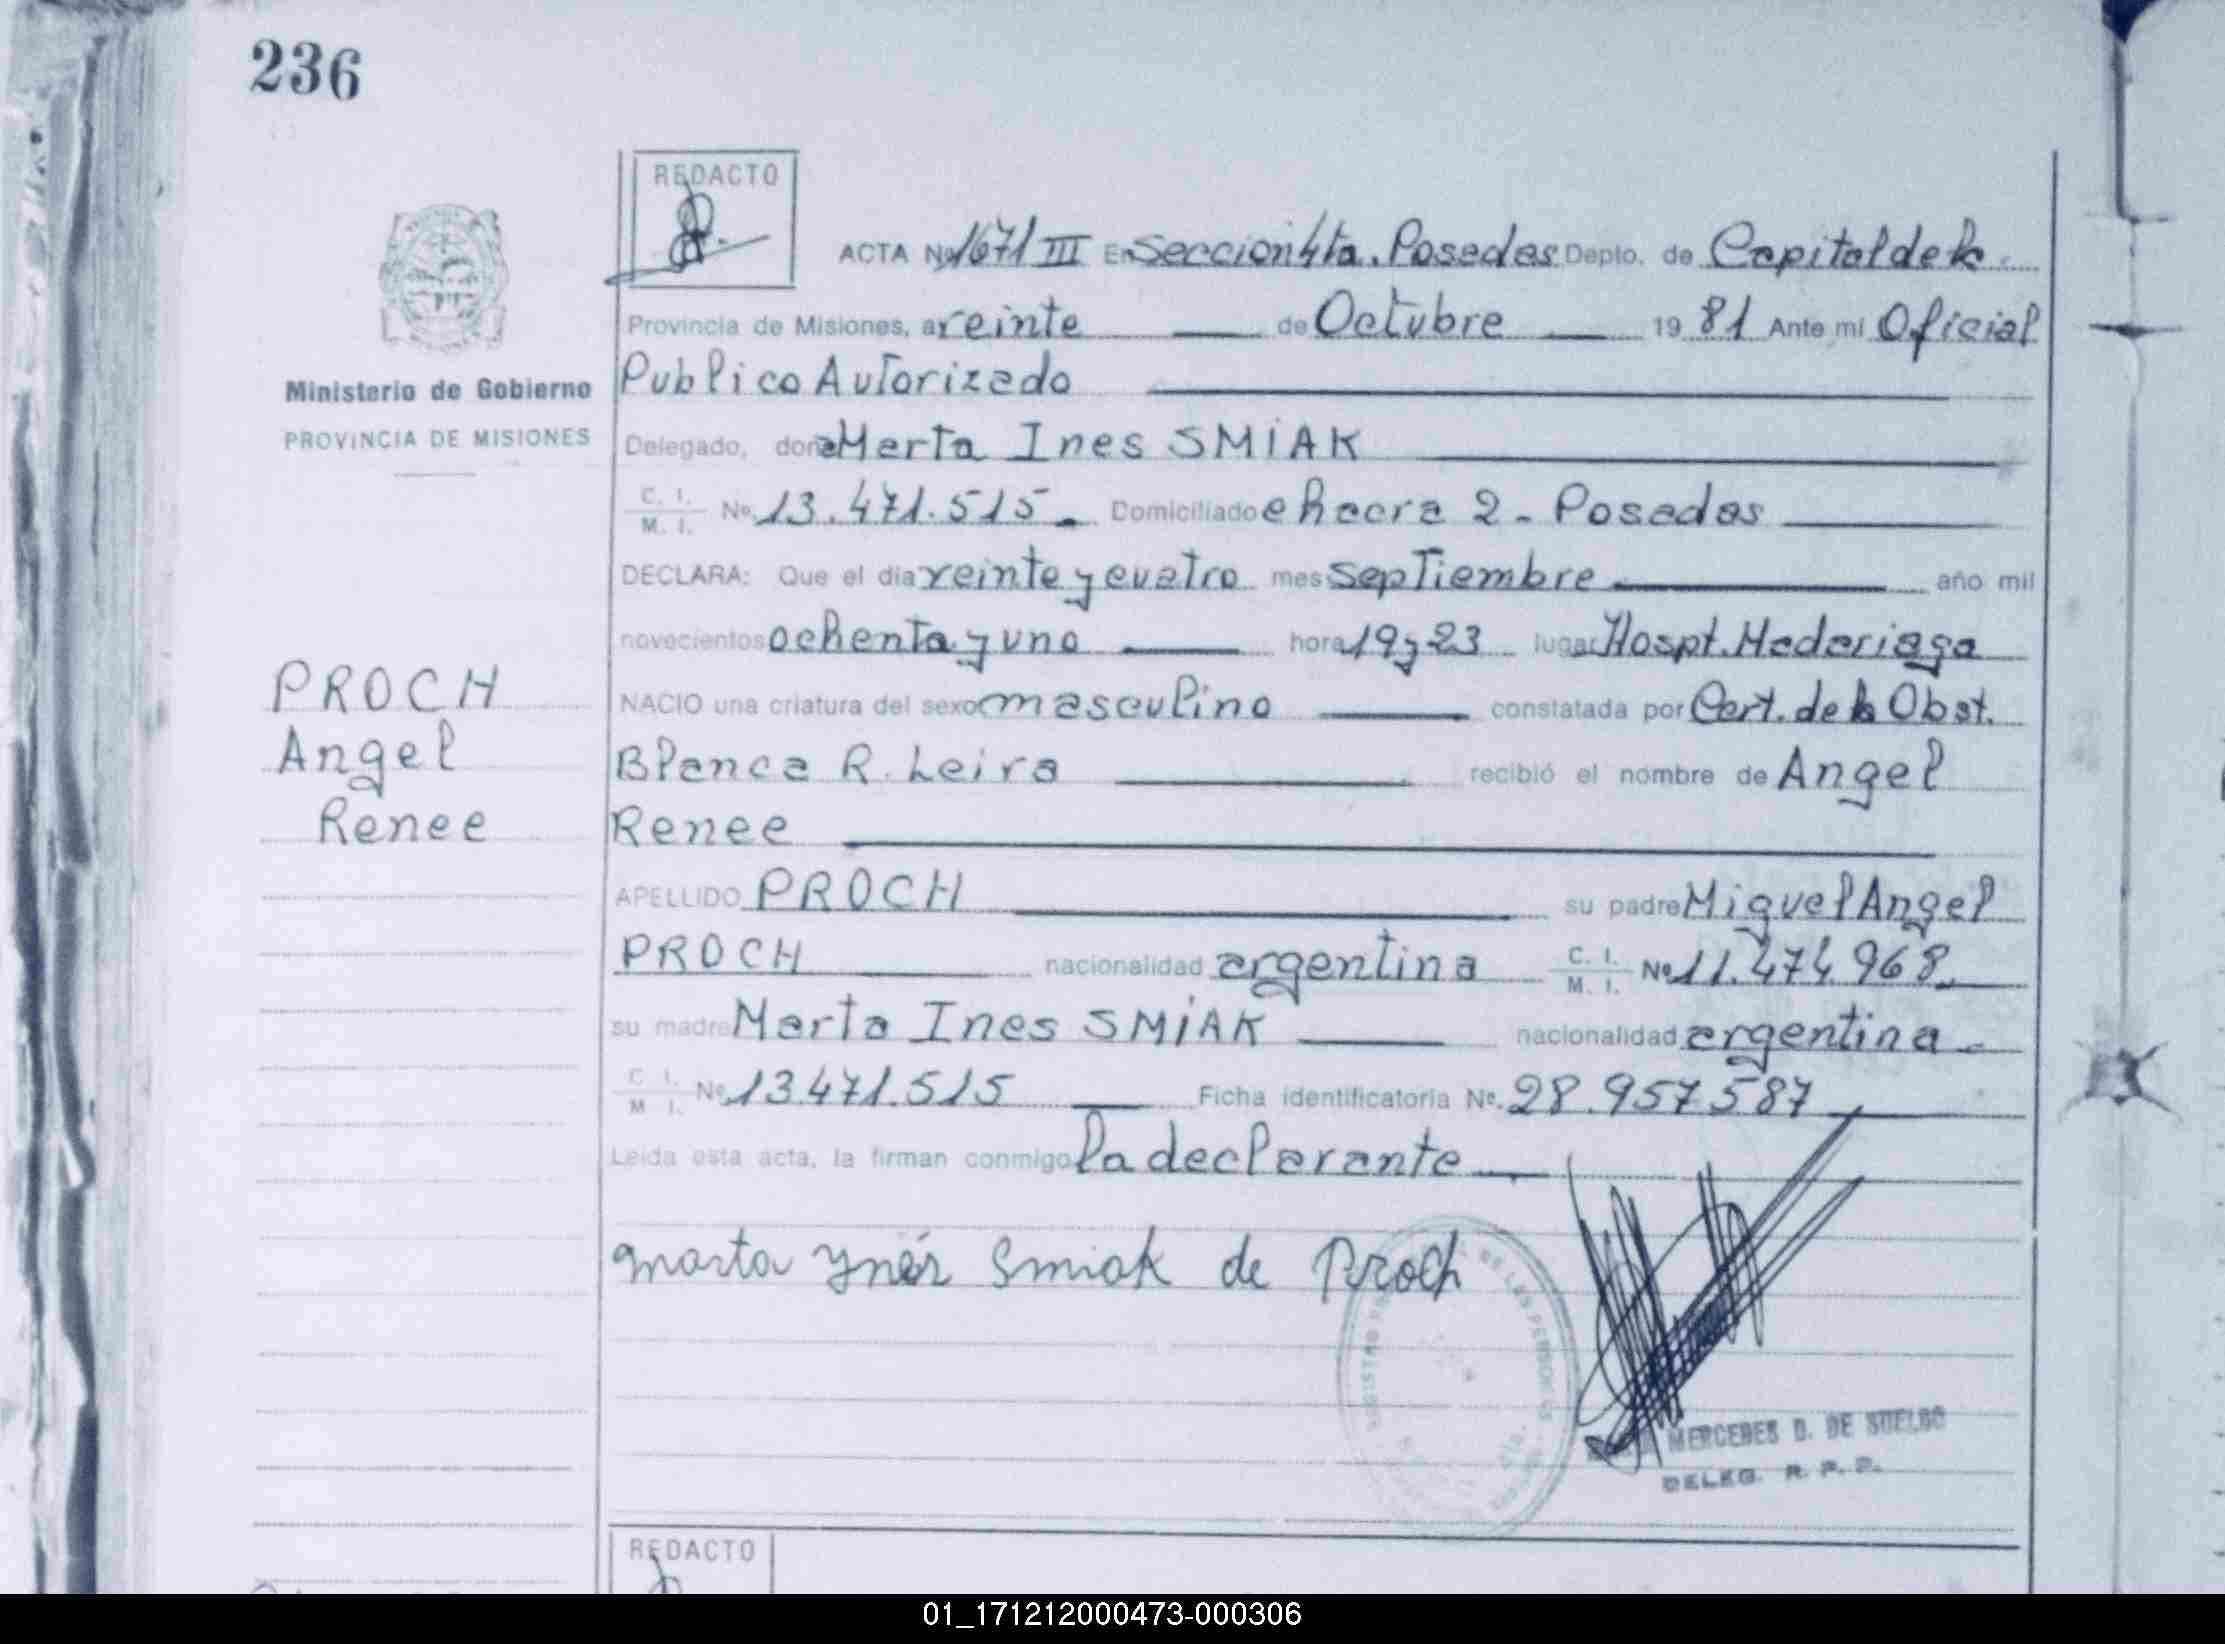 236
REDACTO
ACTA Nº 1671 III En Seccion 4ta. Posadas Depto. de Capital de la
Provincia de Misiones, a veinte de Octubre 19 81 Ante mí Oficial
Publico Autorizado
Ministerio de Gobierno
PROVINCIA DE MISIONES
Delegado, doña Marta Ines SMIAK
C. I. / M. I. Nº 13.471.515 Domiciliado chacra 2 - Posadas
DECLARA: Que el día veinte y cuatro mes septiembre año mil
novecientos ochenta y uno hora 19 y 23 lugar Hospt. Madariaga
NACIO una criatura del sexo masculino constatada por Cert. de la Obst.
Blanca R. Leira recibió el nombre de Angel
Renee
PROCH
Angel
Renee
APELLIDO PROCH su padre Miguel Angel
PROCH nacionalidad argentina C. I. / M. I. Nº 11.474.968
su madre Marta Ines SMIAK nacionalidad argentina
C. I. / M. I. Nº 13.471.515 Ficha identificatoria Nº. 28.957.587
Leída esta acta, la firman conmigo la declarante
Marta Ynés Smiak de Proch
MERCEDES D. DE SUELDO
DELEG. R. P. P.
REDACTO
01_171212000473-000306